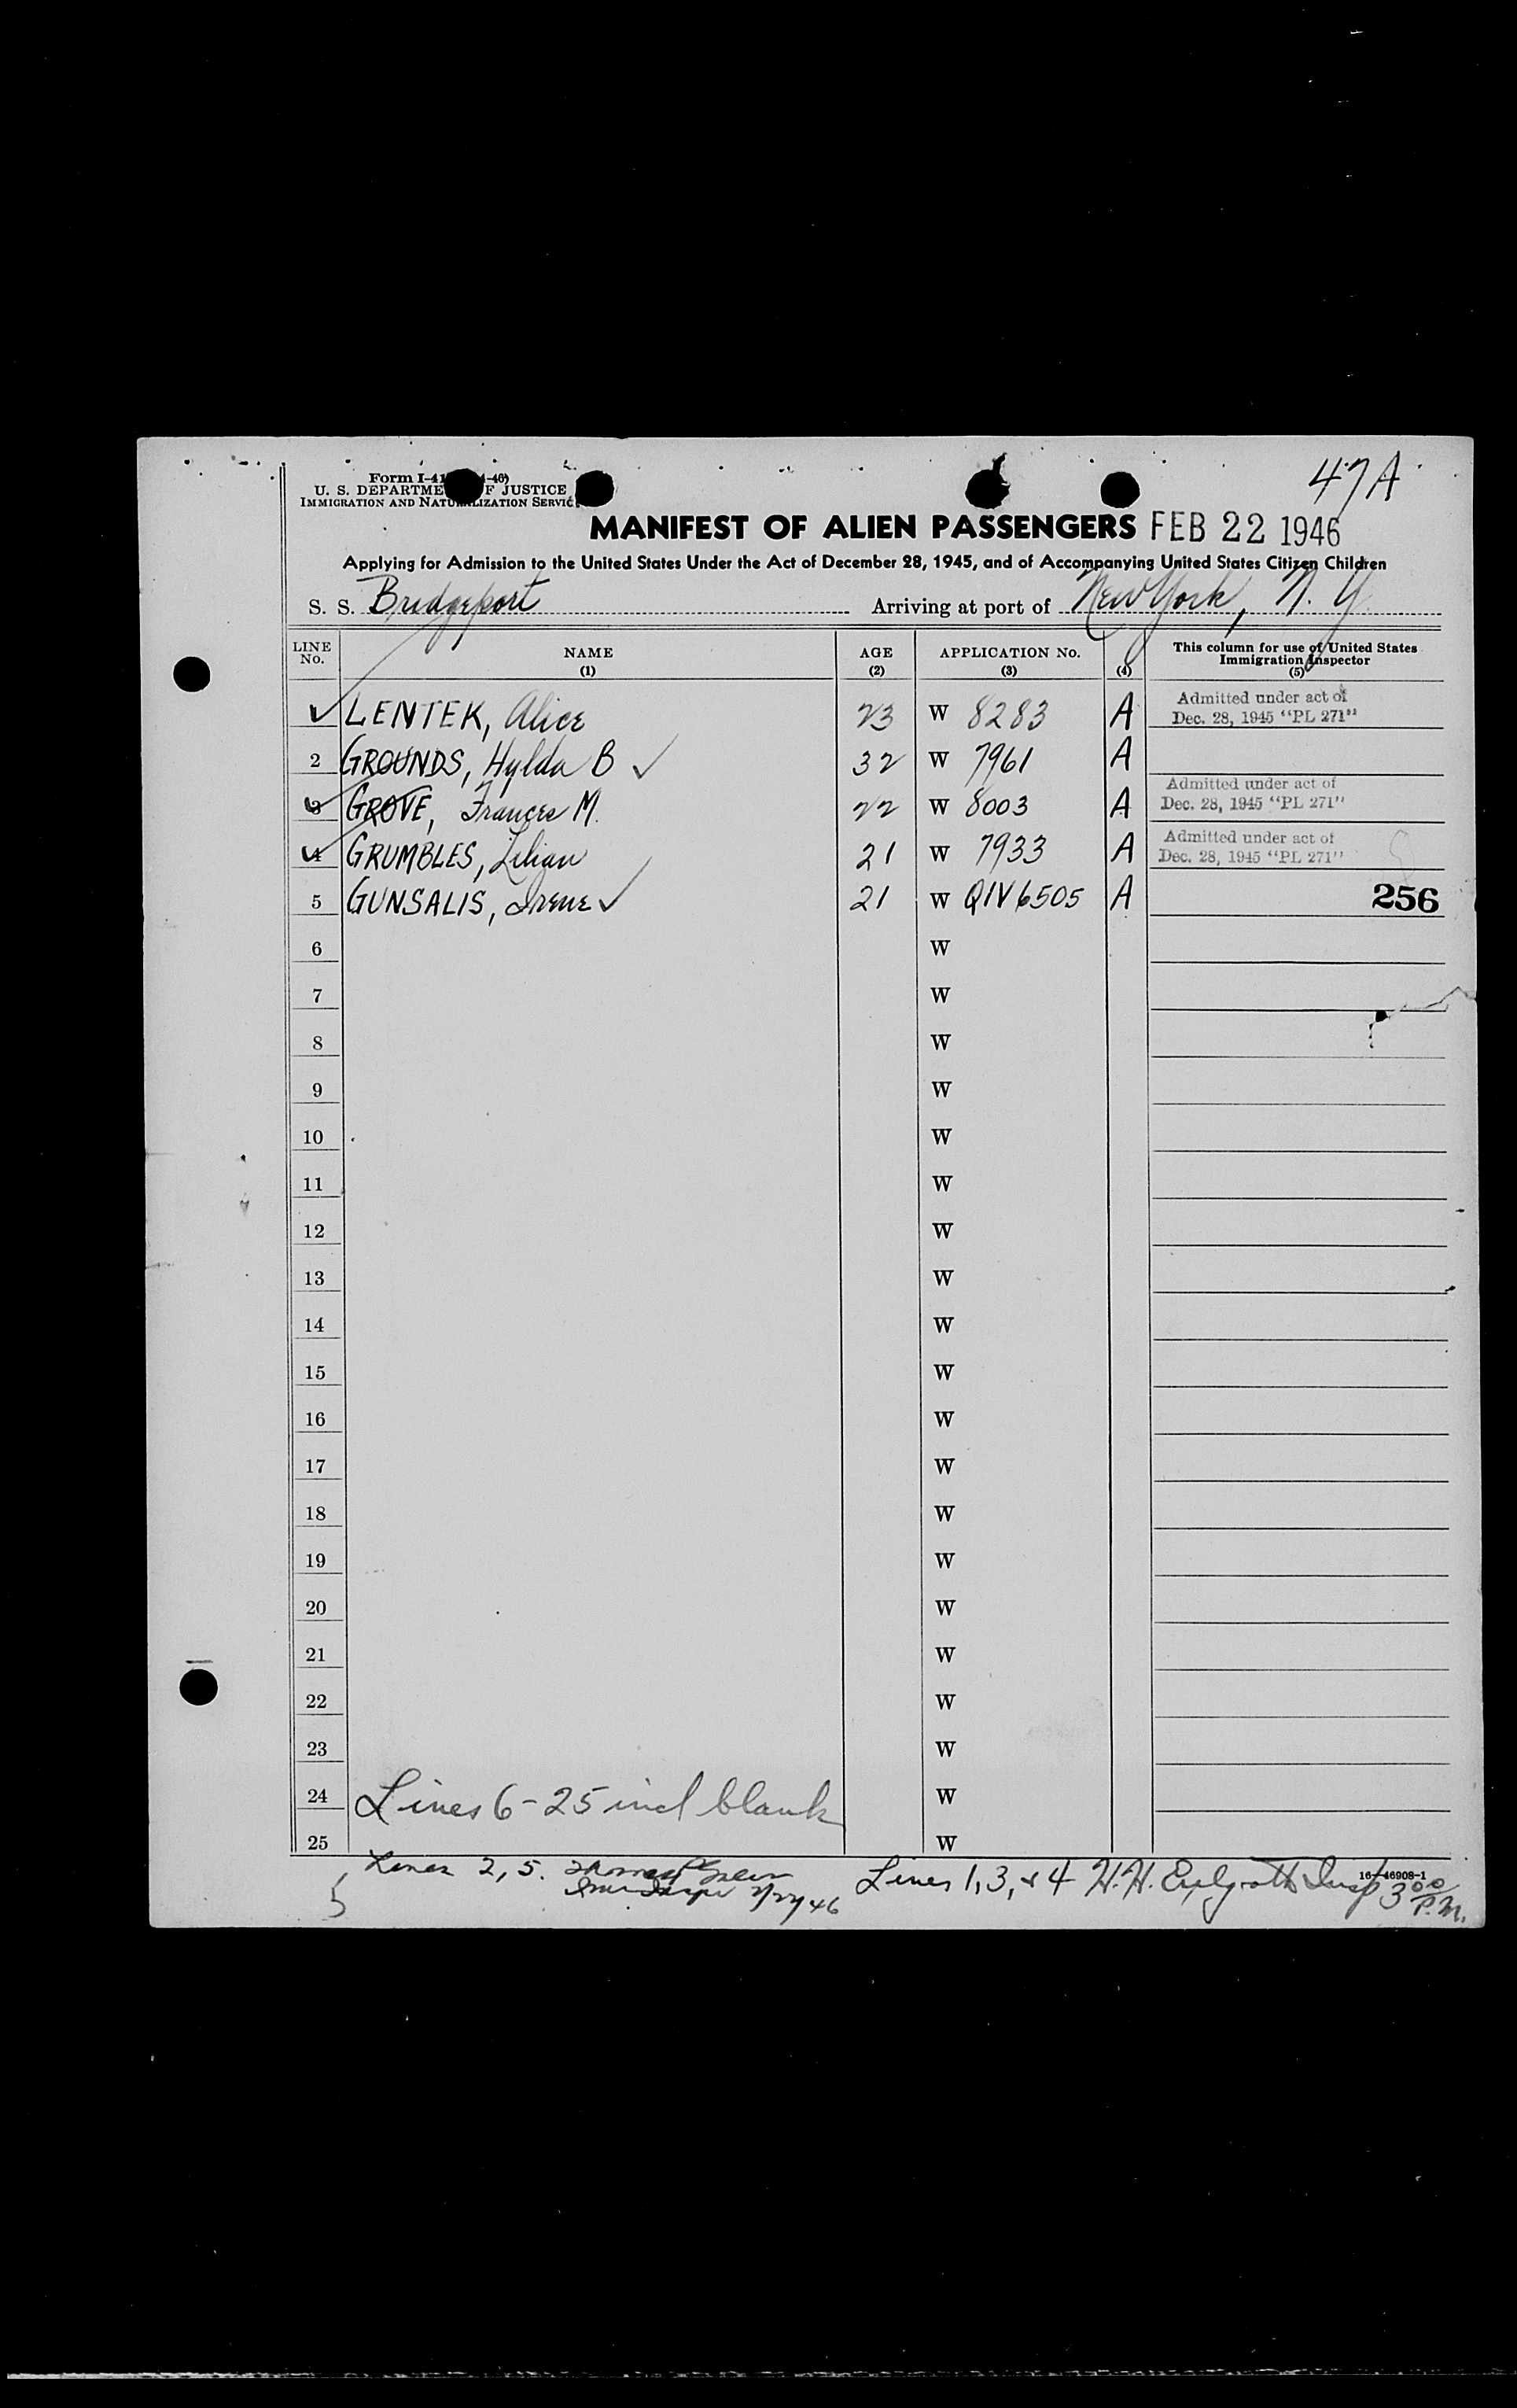 47A
Form I-41 -46)
U. S. DEPARTME F JUSTICE
IMMIGRATION AND NATURALIZATION SERVIC
MANIFEST OF ALIEN PASSENGERS FEB 22 1946
Applying for Admission to the United States Under the Act of December 28, 1945, and of Accompanying United States Citizen Children
S. S. Bridgeport Arriving at port of New York, N. Y.
LINE No. NAME (1) AGE (2) APPLICATION No. (3) (4) This column for use of United States Immigration Inspector (5)
LENTEK, Alice 23 W 8283 A Admitted under act of Dec. 28, 1945 "PL 271"
2 GROUNDS, Hylda B ✓ 32 W 7961 A
3 GROVE, Frances M. 22 W 8003 A Admitted under act of Dec. 28, 1945 "PL 271"
4 GRUMBLES, Lilian 21 W 7933 A Admitted under act of Dec. 28, 1945 "PL 271"
5 GUNSALIS, Irene ✓ 21 W QIV 6505 A 256
6 W
7 W
8 W
9 W
10 W
11 W
12 W
13 W
14 W
15 W
16 W
17 W
18 W
19 W
20 W
21 W
22 W
23 W
24 Lines 6-25 incl blank W
25 W
16-46908-1
Lines 2, 5. Thomas 2/22/46
Lines 1, 3, & 4 H.H. Insp 3 00 P.M.
5